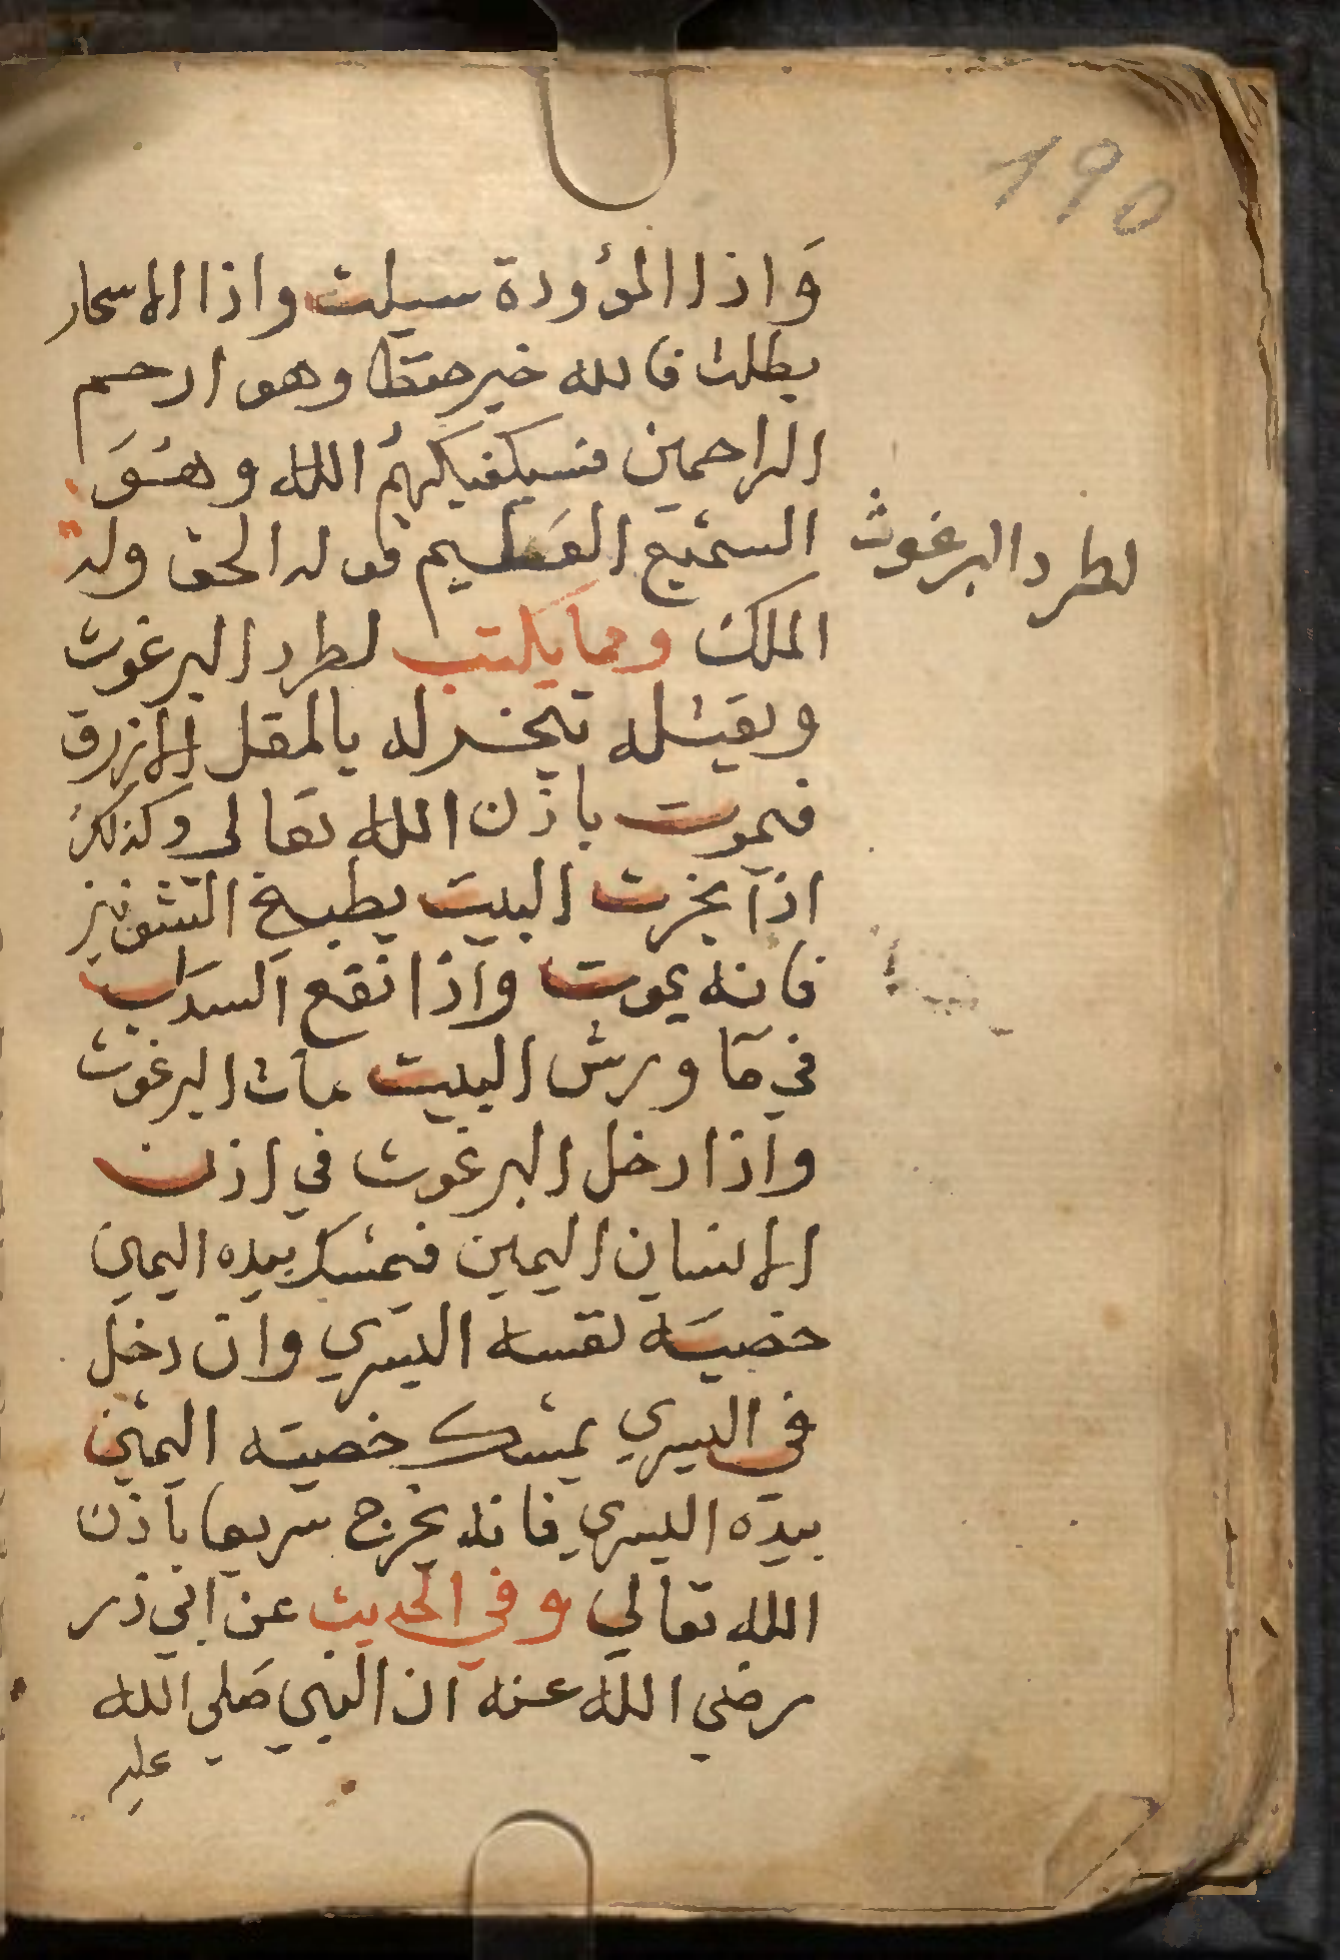 190
وَاذا المؤودة سيلت واذا الاسحار
بطلت فالله خير حفظا وهو ارحم
الراحمين فسيكفيكهمُ الله وهُوَ
السميع العَظيم قوله الحق وله
لطرد البرغوث
الملك ومما يكتب لطرد البرغوث
ويقتله تبخر له بالمقل الازرق
فيموت باذن الله تعالى وكذلك
اذا بخرت البيت بطبيخ الشونيز
فانه يموت واذا نقع السداب
في ما ورش البيت مات البرغوث
واذا دخل البرغوث في اذن
الانسان اليمين فيمسك بيده اليمين
خصيته نفسه اليسري وان دخل
في اليسري يمسك خصيته اليمين
بيده اليسري فانه يخرج سريعا باذن
الله تعالي وفي الحديث عن ابي ذر
رضي الله عنه ان النبي صلي الله
عليه